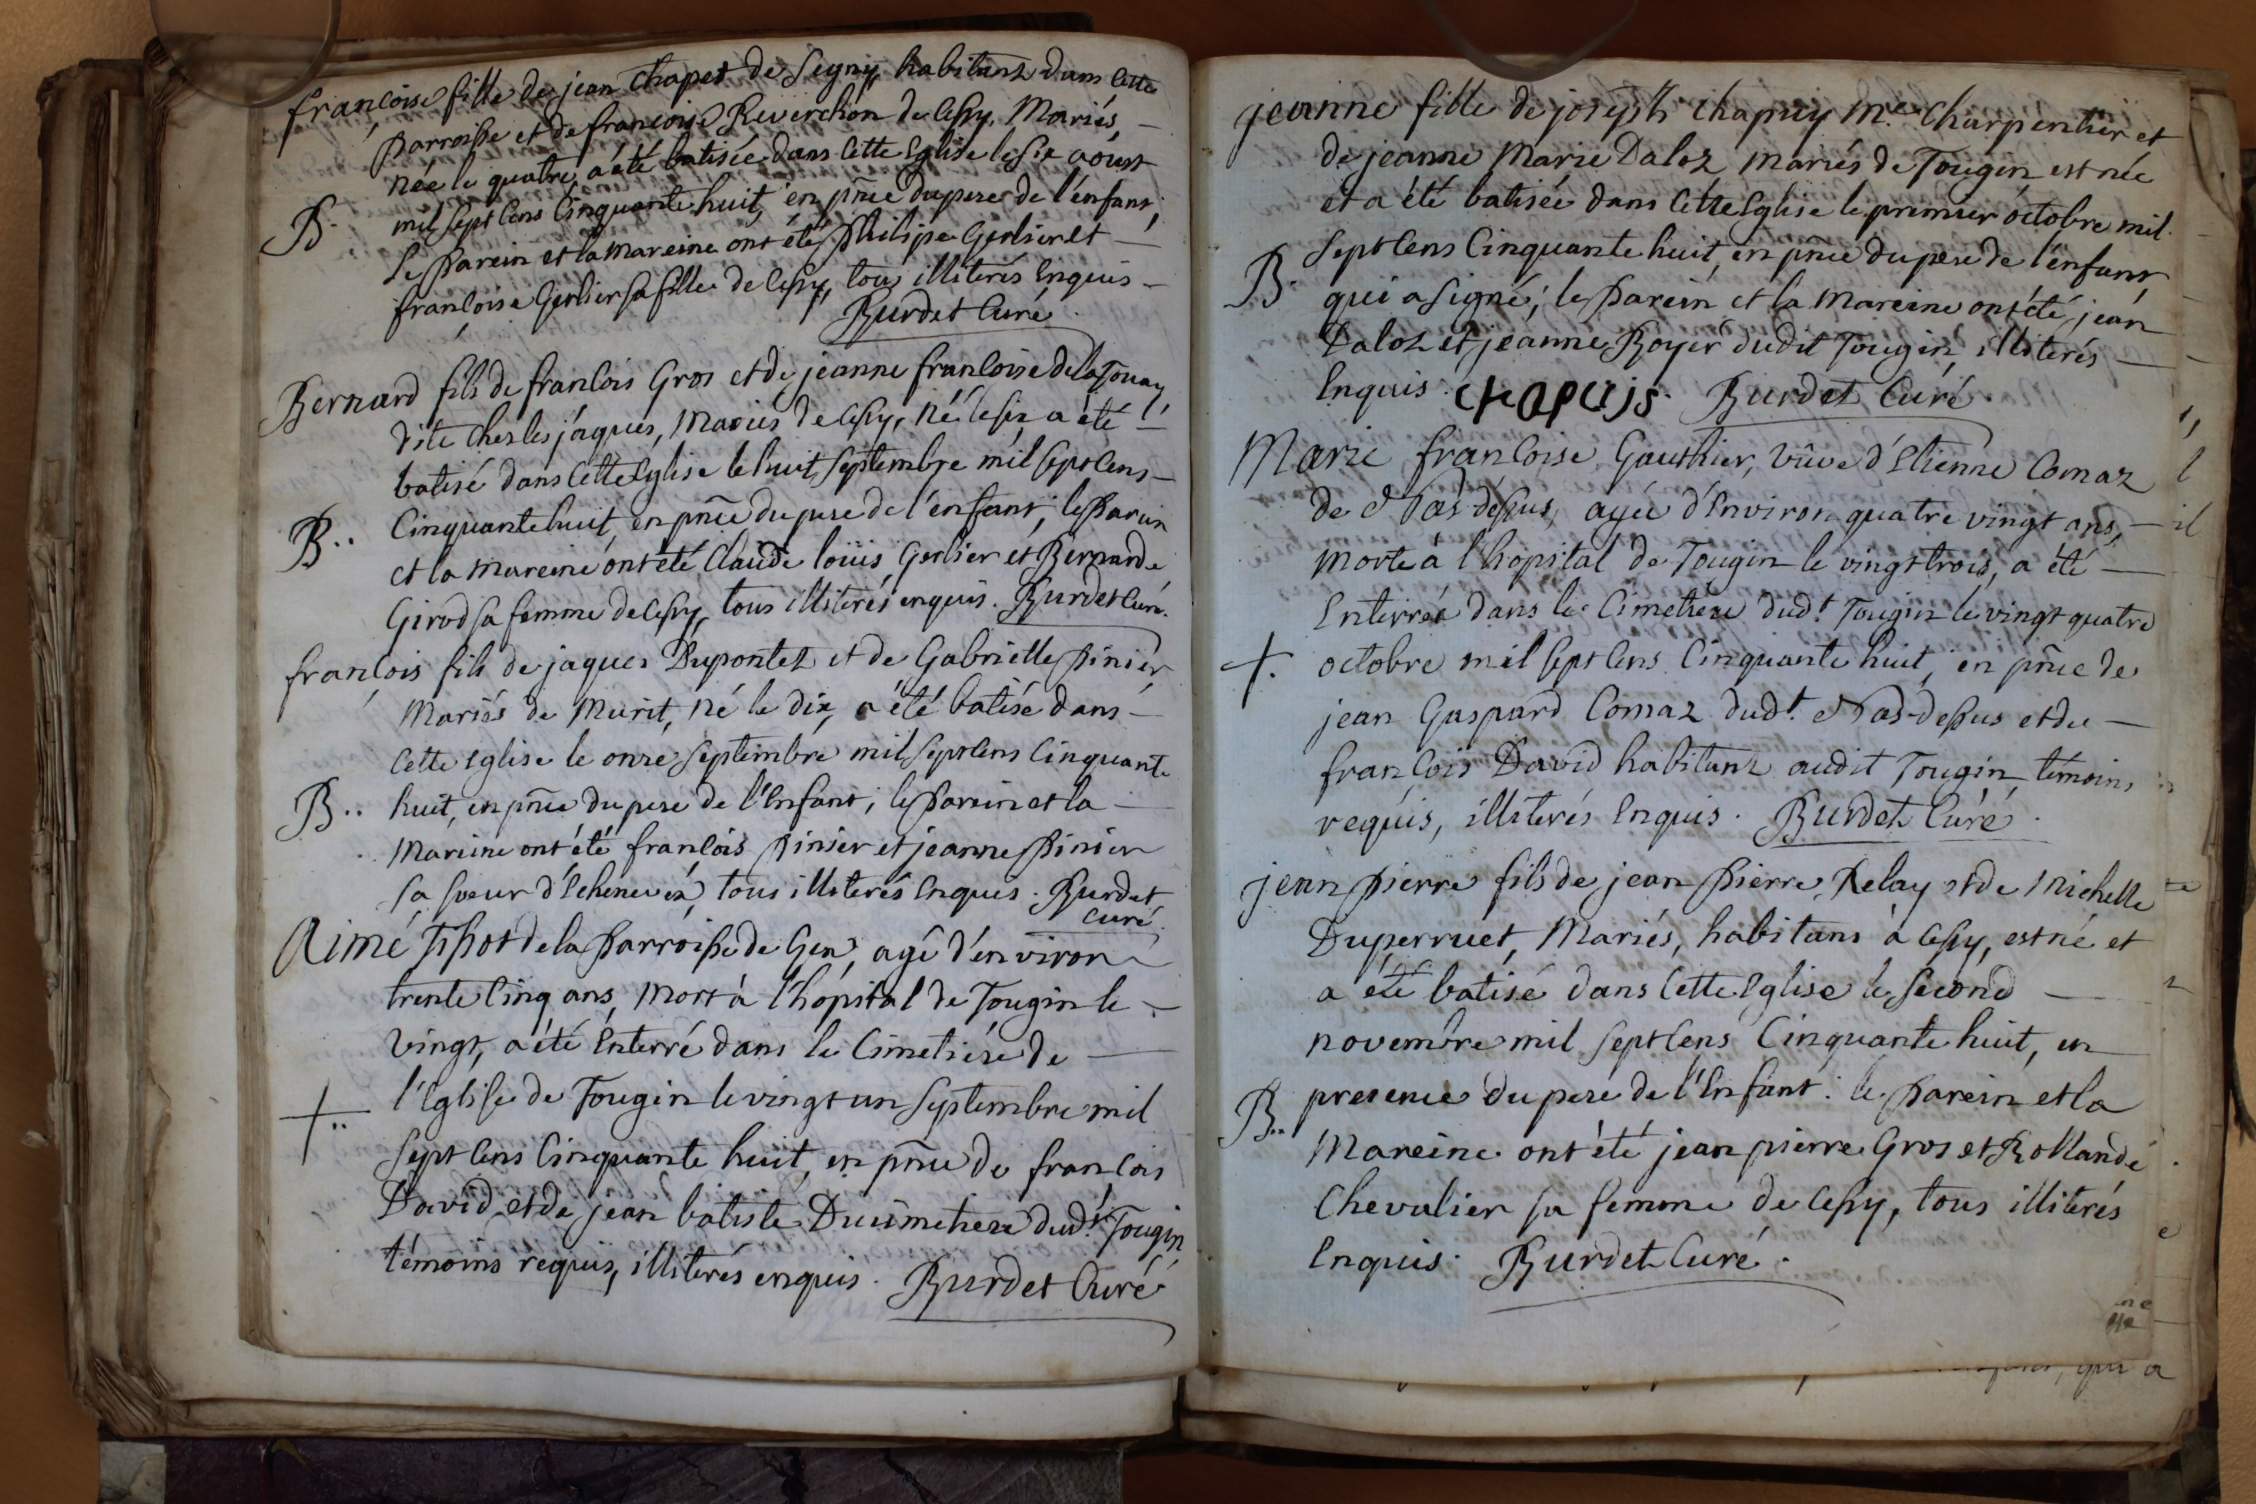 françoise fille de jean Chapet de Segny habitans dans cette
parroisse et de françoise Reverchon de Cessy, Mariés,
née le quatre a été batisée dans cette Eglise le six aoust
mil sept cens Cinquante huit, en pnce du pere de l'enfant;
B.
le parein et la mareine ont été philipe Gerlier et
françoise Gerlier sa fille de Cessy, tous illiterés Enquis
Burdet Curé
Bernard fils de françois Gros et de jeanne françoise de la Touay,
dite Chez les jàques, Mariés de Cessy, né le six a été
batisé dans cette Eglise le huit septembre mil sept cens
B..
Cinquante huit, en pnce du pere de l'enfant; le parein
et la mareine ont été Claude loüis Gerlier et Bernarde
Girod sa femme de Cessy, tous illiterés enquis. Burdet Curé.
françois fils de jaques Dupontet et de Gabrielle pinier
Mariés de Murit, né le dix, a été batisé dans
cette Eglise le onze septembre mil sept cens Cinquante
B..
huit, en pnce du pere de l'Enfant; le parein et la
Mareine ont été françois pinier et jeanne pinier
sa soeur d'Echenevex, tous illiterés Enquis. Burdet
curé.
Aimé de la parroisse de Gex, agé d'environ
trente Cinq ans, Mort à l'hopital de Tougin le
vingt, a été Enterré dans le Cimetiére de
+..
l'Eglise de Tougin le vingt un septembre mil
sept cens Cinquante huit, en pnce de françois
David et de jean batiste Ducimetiere dudt. Tougin,
témoins requis, illiterés enquis. Burdet Curé
jeanne fille de joseph Chapuy Me. Charpentier et
de jeanne Marie Daloz mariés de Tougin est née
et a été batisée dans cette Eglise le premier octobre mil
sept cens Cinquante huit, en pnce du pere de l'énfant,
B.
qui a signé; le parein et la mareine ont été jean
Daloz et jeanne Royer dudit Tougin, illiterés
Enquis. chapuis. Burdet Curé
Marie françoise Gauthier, vûve d'Etienne Comaz
de Nas-dessus, agée d'Environ quatre vingt ans,
morte à l'hopital de Tougin le vingt trois, a été
Enterrée dans le Cimetiére dudt. Tougin le vingt quatre
+.
octobre mil sept cens Cinquante huit, en pnce de
jean Gaspard Comaz dudt. Nas-dessus et du
françois David habitant audit Tougin, témoins
requis, illiterés Enquis. Burdet Curé.
jean pierre fils de jean pierre Relay et de Michelle
Duperruet, Mariés, habitans à Cessy, est né et
a été batisé dans cette Eglise le second
novembre mil sept cens Cinquante huit, en
B..
presence du pere de l'Enfant: le parein et la
Mareine ont été jean pierre Gros et Rollande
Chevalier sa femme de Cessy, tous illiterés
Enquis. Burdet Curé.
qui a